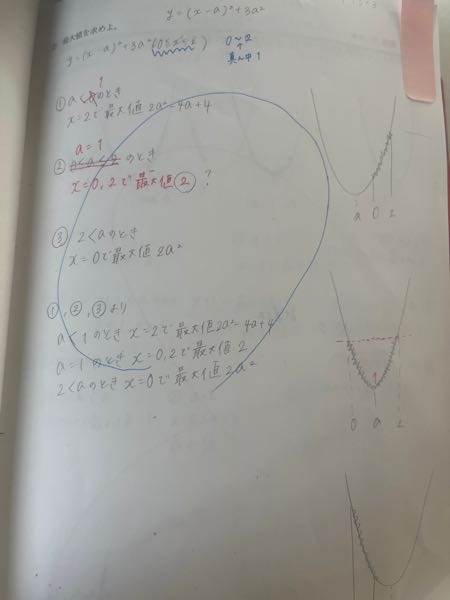 y=(x-a)²+3a²
最大値を求めよ。
y=(x-a)²+3a²(0≤x≤2)
0~2
↑
真ん中1
1
① a<のとき
x=2で最大値2a²-4a+4
a=1
② のとき
x=0,2で最大値② ?
③ 2<aのとき
x=0で最大値2a²
①,②,③より
a<1のときx=2で最大値2a²-4a+4
a=1のときx=0,2で最大値2
2<aのときx=0で最大値2a²
a 0 2
1
0 a 2